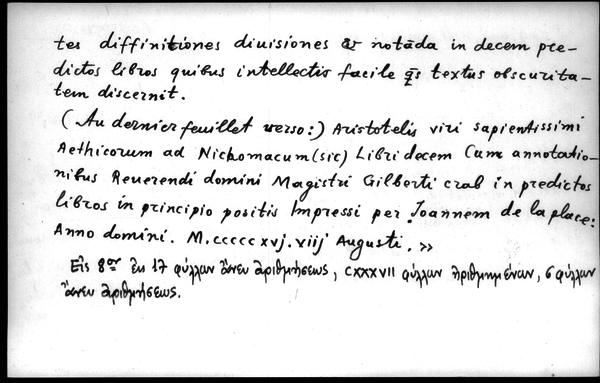 tes diffinitiones diuisiones & notāda in decem pre-
dictos libros quibus intellectis facile q̄s textus obscurita-
tem discernit.
(Au dernier feuillet verso:) Aristotelis viri sapientissimi
Aethicorum ad Nichomacum (sic) Libri decem Cum annotatio-
nibus Reuerendi domini Magistri Gilberti crab in predictos
libros in principio positis Impressi per Joannem de la place:
Anno domini. M.cccccxvj.viij Augusti. »
Εἰς 8ον ἐκ 17 φύλλων ἄνευ ἀριθμήσεως, CXXXVII φύλλων ἠριθμημένων, 6 φύλλων
ἄνευ ἀριθμήσεως.